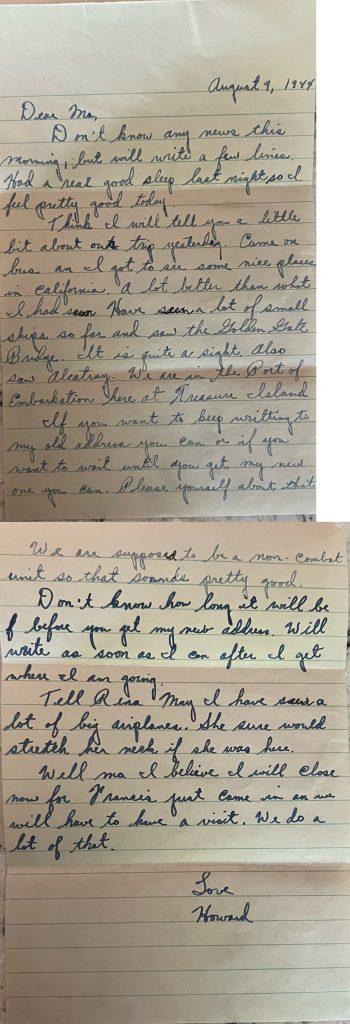 August 9, 1944
Dear Ma,
Don't know any news this
morning, but will write a few lines.
Had a real good sleep last night so I
feel pretty good today.
Think I will tell you a little
bit about our trip yesterday. Came on
bus an I got to see some nice places
in California. A lot better than what
I had seen Have seen a lot of small
ships so far and saw the Golden Gate
Bridge. It is quite a sight. Also
saw Alcatraz. We are in the Port of
Embarkation here at Treasure Island
If you want to keep writting to
my old address you can or if you
want to wait until you get my new
one you can. Please yourself about that
We are supposed to be a non-combat
unit so that sounds pretty good.
Don't know how long it will be
before you get my new address. Will
write as soon as I can after I get
where I am going.
Tell Rina May I have seen a
lot of big airplanes. She sure would
stretch her neck if she was here.
Well ma I believe I will close
now for Francis just came in an we
will have to have a visit. We do a
lot of that.
Love
Howard